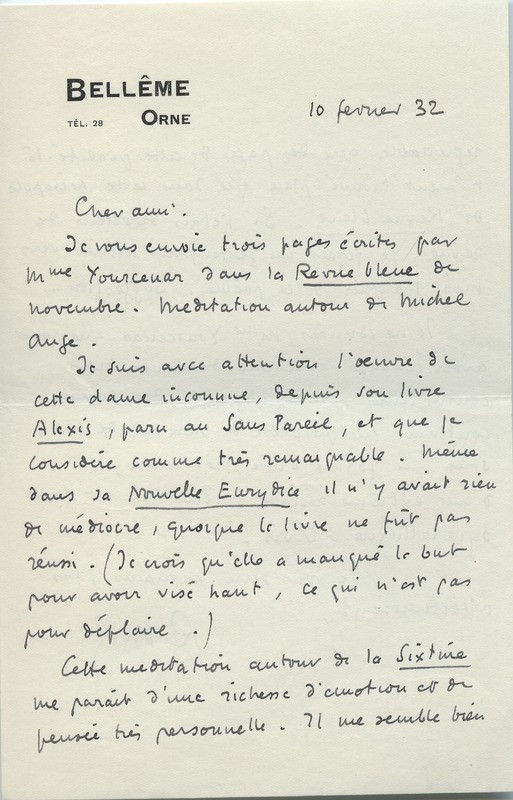 BELLÊME
TÉL. 28 ORNE
10 fevrier 32
Cher ami.
Je vous envoie trois pages écrites par
Mme Yourcenar dans la Revue bleue de
novembre. Meditation autour de Michel
Ange.
Je suis avec attention l'oeuvre de
cette dame inconnue, depuis son livre
Alexis, paru au Sans Pareil, et que je
considère comme très remarquable. Même
dans sa Nouvelle Eurydice il n'y avait rien
de médiocre, quoique le livre ne fût pas
réussi. (Je crois qu'elle a manqué le but
pour avoir visé haut, ce qui n'est pas
pour déplaire.)
Cette meditation autour de la Sixtine
me paraît d'une richesse d'émotion et de
pensée très personnelle. Il me semble bien